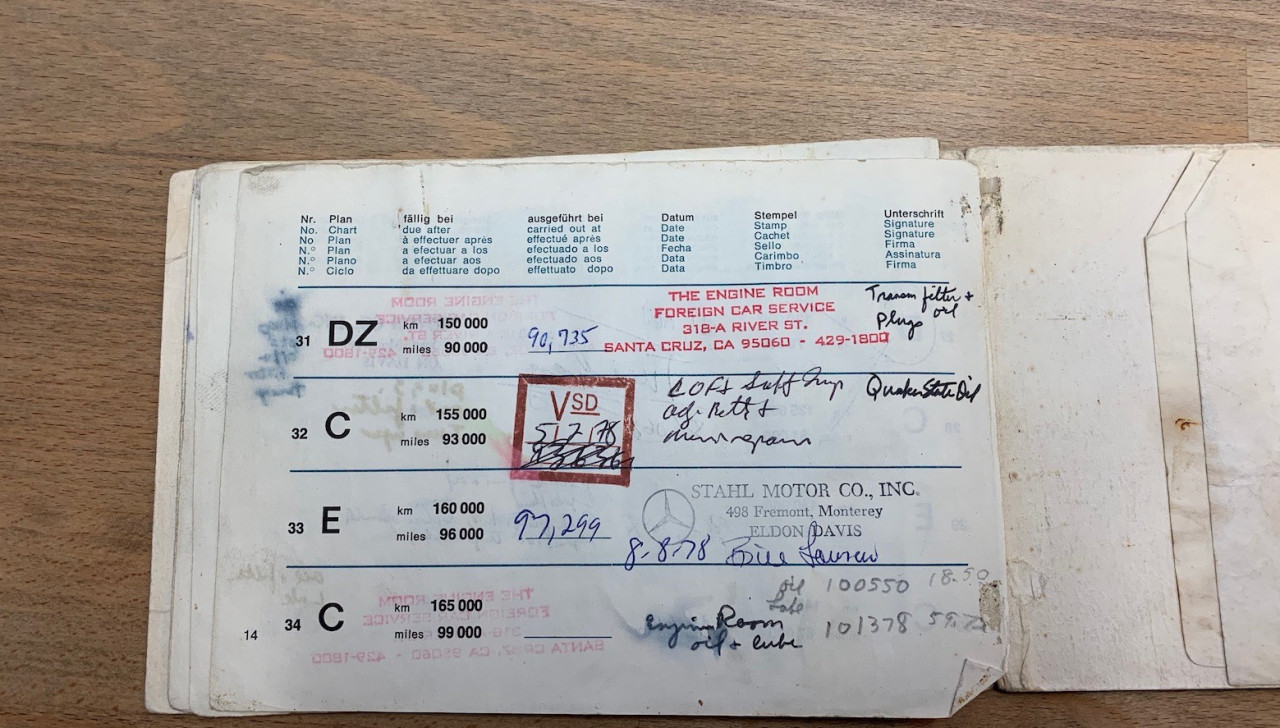 Nr. Plan fällig bei ausgeführt bei Datum Stempel Unterschrift
No. Chart due after carried out at Date Stamp Signature
No Plan à effectuer après effectué après Date Cachet Signature
N.° Plan a efectuar a los efectuado a los Fecha Sello Firma
N.° Plano a efectuar aos efectuado aos Data Carimbo Assinatura
N.° Ciclo da effettuare dopo effettuato dopo Data Timbro Firma
31 DZ km 150 000
miles 90 000 90,735
THE ENGINE ROOM
FOREIGN CAR SERVICE
318-A RIVER ST.
SANTA CRUZ, CA 95060 - 429-1800
Transm filter +
oil
Plugs
32 C km 155 000
miles 93 000
VSD
5 17 78
adj
Quaker State Oil
33 E km 160 000
miles 96 000 97,299
STAHL MOTOR CO., INC.
498 Fremont, Monterey
ELDON DAVIS
8-8-78 Bill
34 C km 165 000
miles 99 000
oil 100550 18.50
lube
Engine Room 101378
oil + lube
14